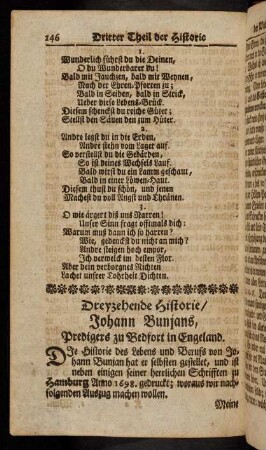 146 Dritter Theil der Historie
1.
Wunderlich führst du die Deinen,
O du Wunderbarer du!
Bald mit Jauchzen, bald mit Weynen,
Nach der Ehren-Pforten zu;
Bald in Seiden, bald in Strick,
Ueber diese Lebens-Brück.
Diesem schenckst du reiche Güter;
Stellst den Säuen den zum Hüter.
2.
Andre legst du in die Erden,
Andre stehn vom Lager auf.
So verstellt du die Gebärden,
So ist deines Wechsels Lauf.
Bald wirst du ein Lamm geschaut,
Bald in einer Löwen-Haut.
Diesem thust du schön, und jenen
Machest du voll Angst und Thränen.
3.
O wie ärgert diß uns Narren!
Unser Sinn fragt offtmals dich:
Warum muß dann ich so harren?
Wie, gedenckst du nicht an mich?
Andre steigen hoch empor,
Ich verwelck im besten Flor.
Aber dein verborgnes Richten
Lachet unsrer Thorheit Dichten.
Dreyzehende Historie/
Johann Bunjans,
Predigers zu Bedfort in Engeland.
DIe Historie des Lebens und Berufs von Jo-
hann Bunjan hat er selbsten gestellet, und ist
neben einigen seiner herrlichen Schrifften zu
Hamburg Anno 1698. gedruckt; woraus wir nach-
folgenden Auszug machen wollen.
Meine